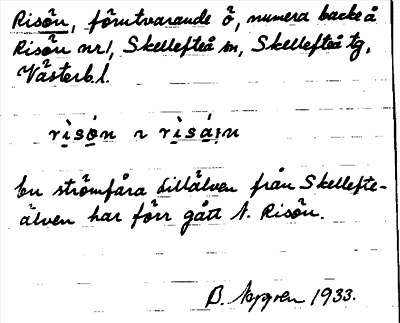 Risön, förutvarande ö, numera backe å
Risön nr 1, Skellefteå sn, Skellefteå tg,
Västerb. l.
risön ~ risán
En strömfåra Lillälven från Skellefte-
älven har förr gått N. Risön.
B. 1933.